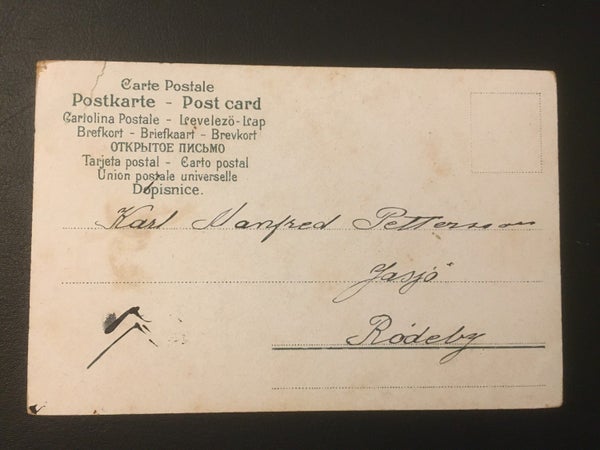 Carte Postale
Postkarte - Post card
Cartolina Postale - Levelezö-Lap
Brefkort - Briefkaart - Brevkort
ОТКРЫТОЕ ПИСЬМО
Tarjeta postal - Carto postal
Union postale universelle
Dopisnice.
Karl Manfred Petterson
Jasjö
Rödeby